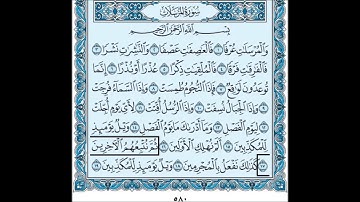 سورة المرسلات
بسم الله الرحمن الرحيم
والمرسلات عرفا ١ فالعاصفات عصفا ٢ والناشرات نشرا ٣
فالفارقات فرقا ٤ فالملقيات ذكرا ٥ عذرا أو نذرا ٦ إنما
توعدون لواقع ٧ فإذا النجوم طمست ٨ وإذا السماء فرجت
٩ وإذا الجبال نسفت ١٠ وإذا الرسل أقتت ١١ لأي يوم أجلت
١٢ ليوم الفصل ١٣ وما أدراك ما يوم الفصل ١٤ ويل يومئذ
للمكذبين ١٥ ألم نهلك الأولين ١٦ ثم نتبعهم الآخرين
١٧ كذلك نفعل بالمجرمين ١٨ ويل يومئذ للمكذبين ١٩
٥٨٠